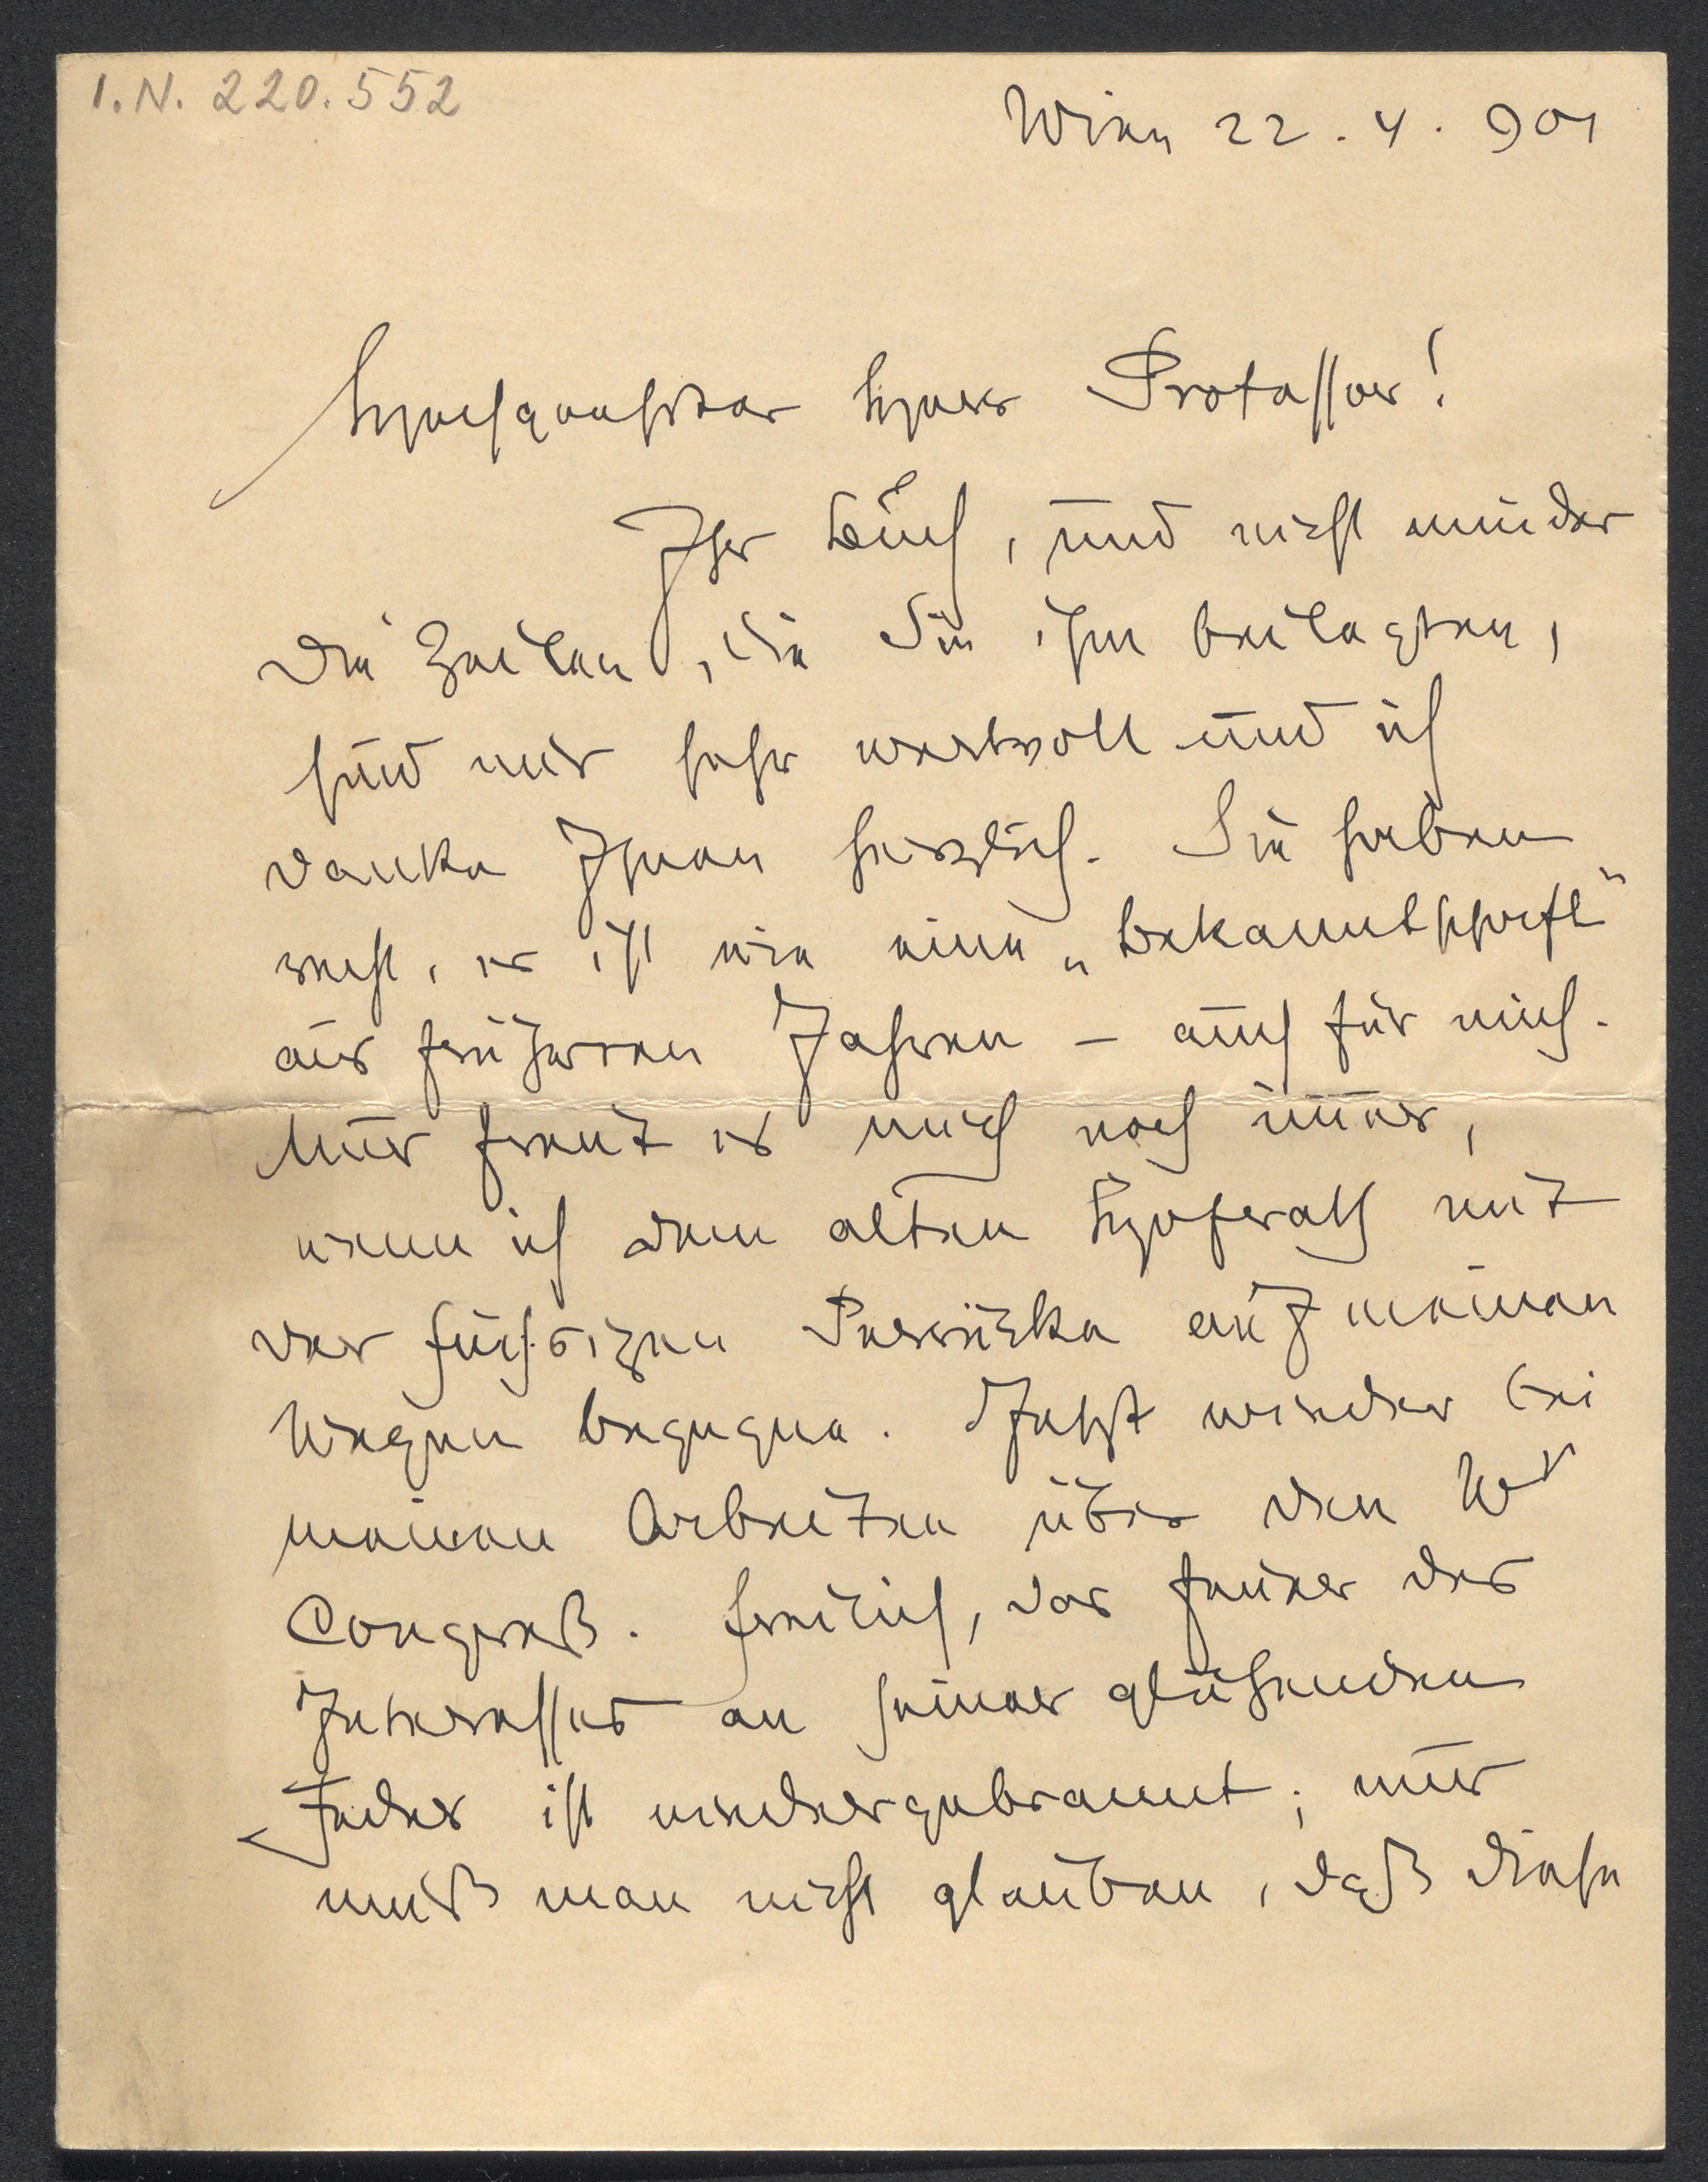 I.N. 220.552
Wien 22. 4. 901
Hochgeehrter Herr Professor!
Ihr Buch, und nicht minder
die Zeilen, die Sie ihm beilegten,
sind mir sehr wertvoll und ich
danke Ihnen herzlich. Sie haben
recht, er ist wie eine „Bekanntschaft“
aus früheren Jahren – auch für mich.
Nur freut es mich noch immer,
wenn ich dem alten Hofrath mit
der fuchsigen Perrücke auf meinen
Wegen begegne. Jetzt wieder bei
meinen Arbeiten über den Wr
Congreß. Freilich, das Feuer des
Interesses an seiner glühenden
Feder ist niedergebrannt; nur
muß man nicht glauben, daß diese